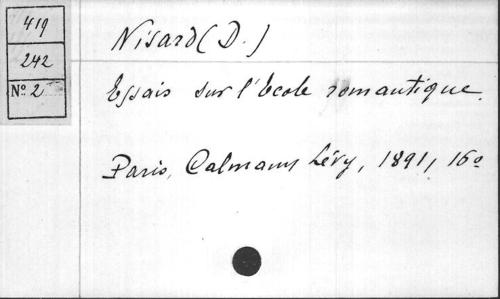 419
242
Nº 2
Nisard (D.)
Essais sur l'école romantique.
Paris, Calmann Lévy, 1891, 16º